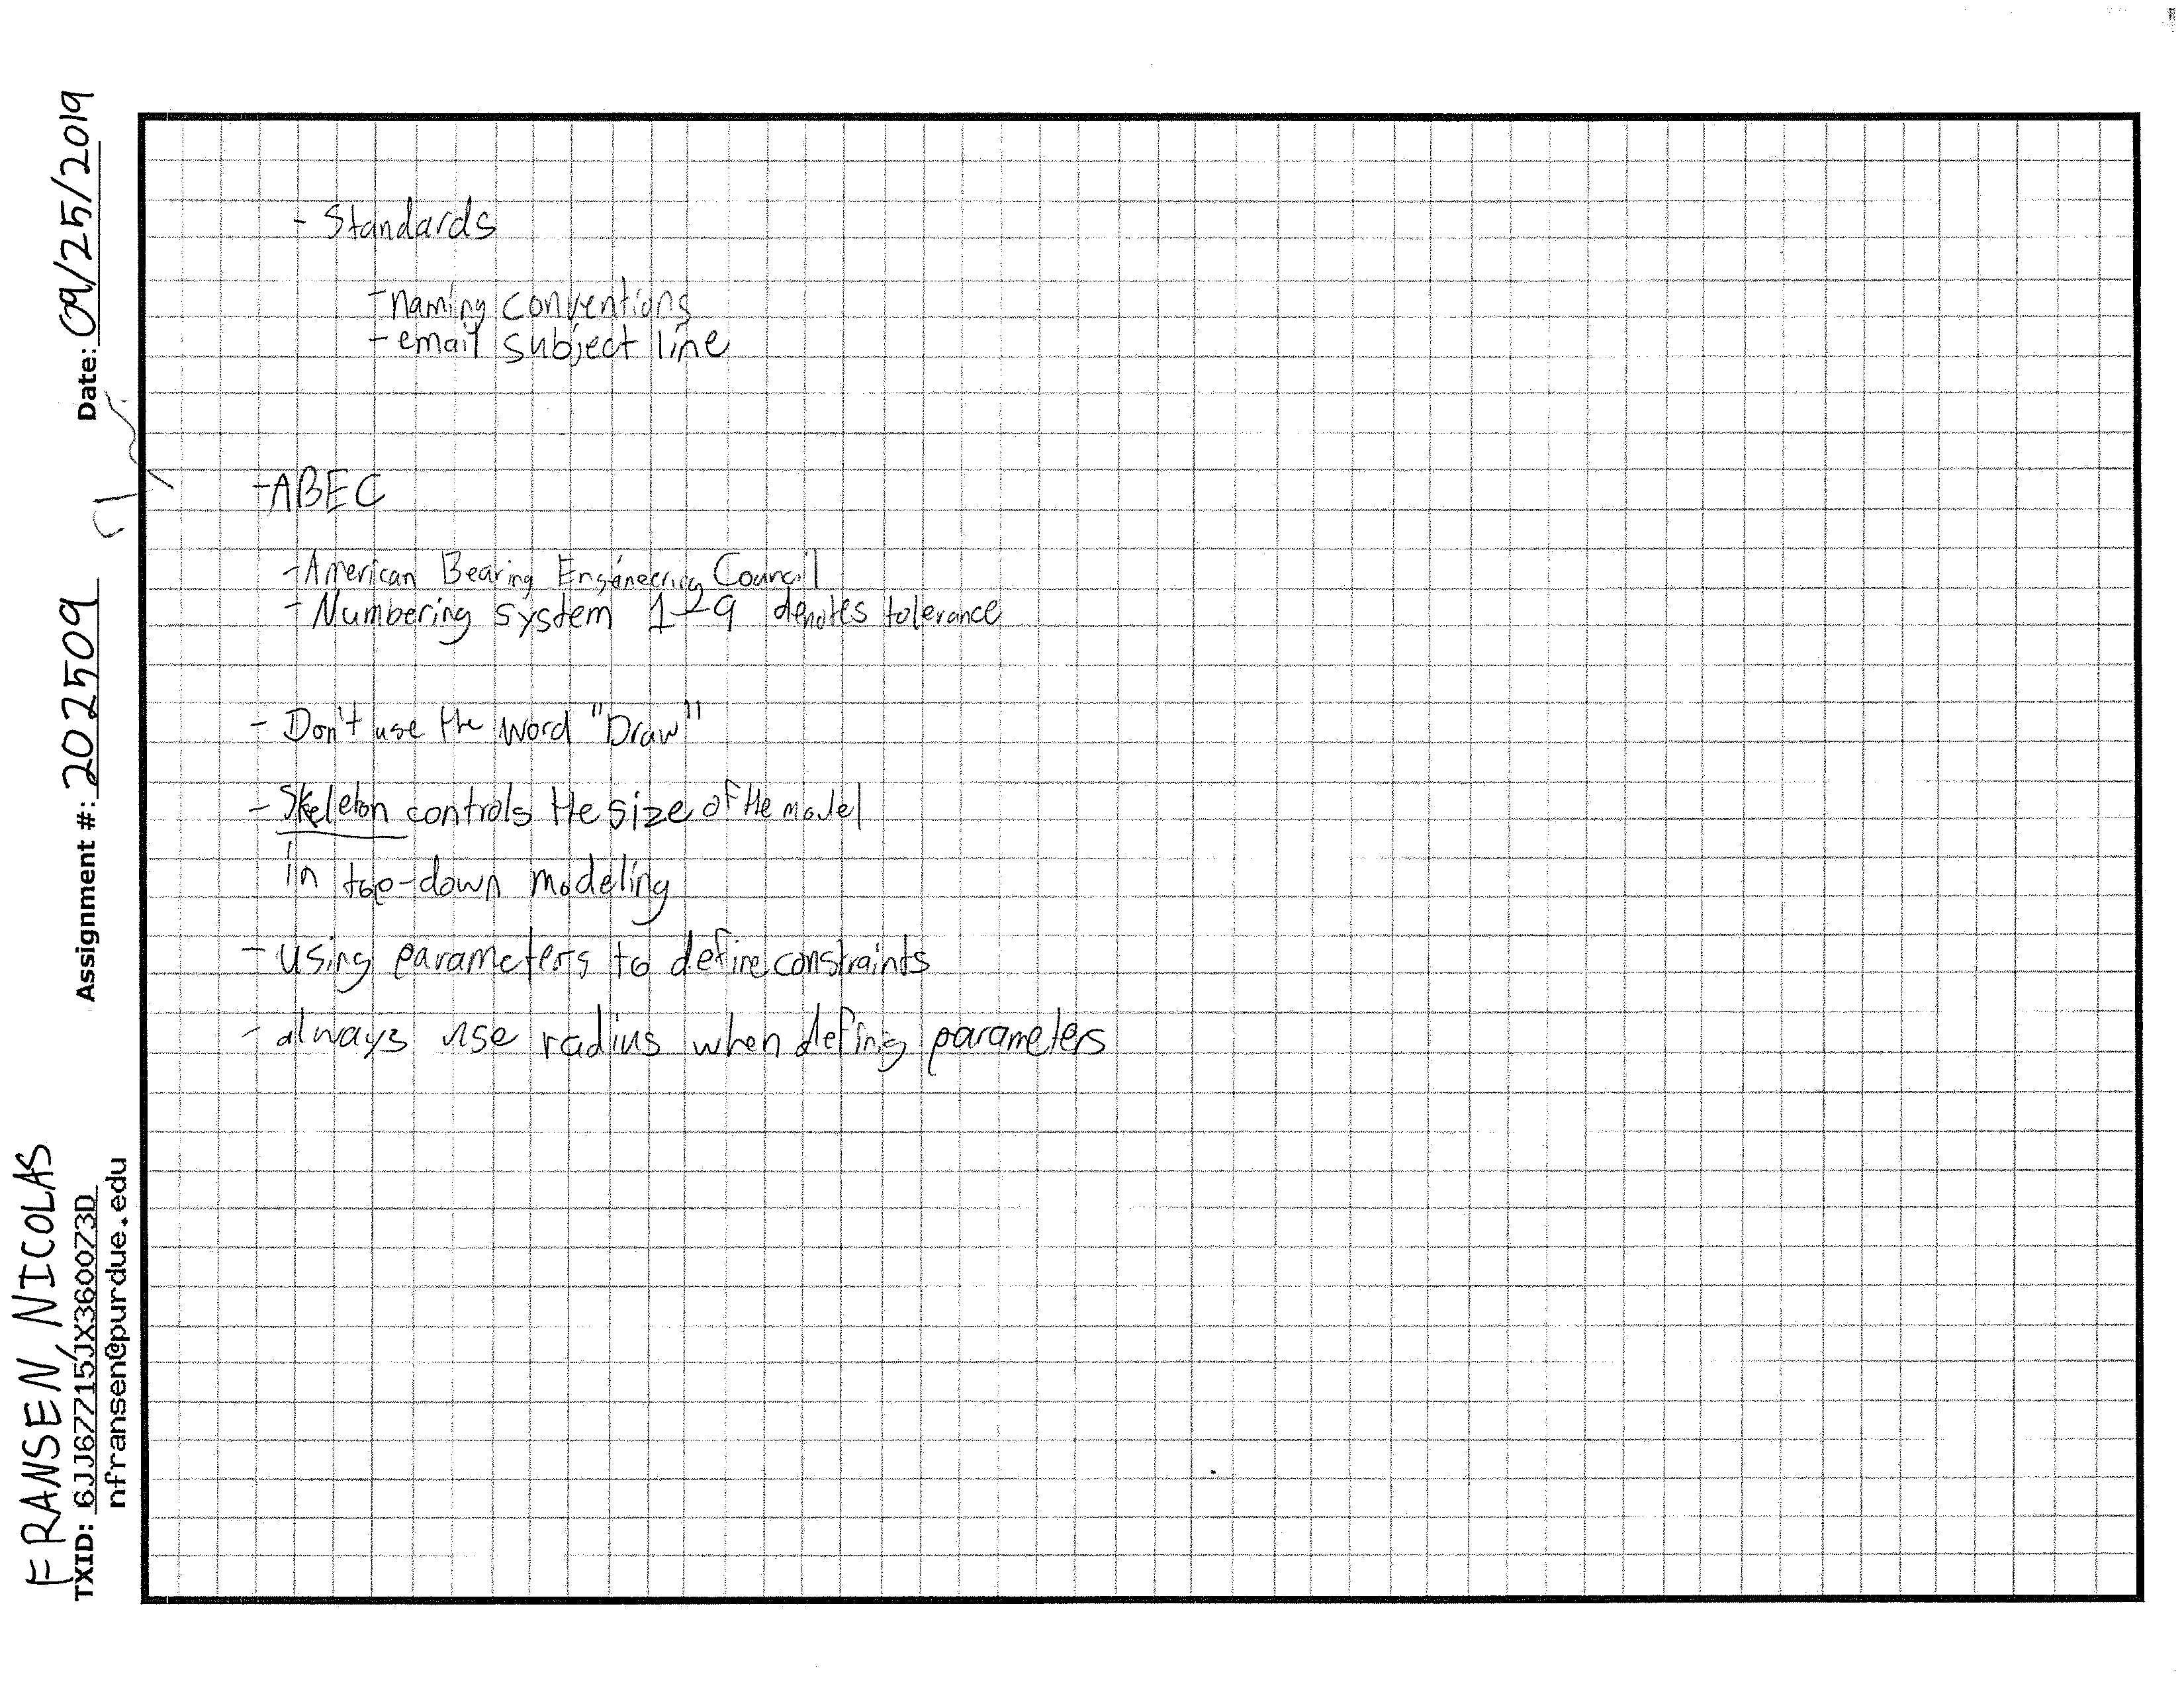 FRANSEN, NICOLAS
TXID: 6JJ6ZZ15JX3600Z3D
nfransen@purdue.edu
Assignment #: 202509
Date: 09/25/2019
- Standards
- naming conventions
- email subject line
- ABEC
- American Bearing Engineering Council
- Numbering system 1-9 denotes tolerance
- Don't use the word "Draw"
- Skeleton controls the size of the model
in top-down modeling
- using parameters to define constraints
- always use radius when defing parameters